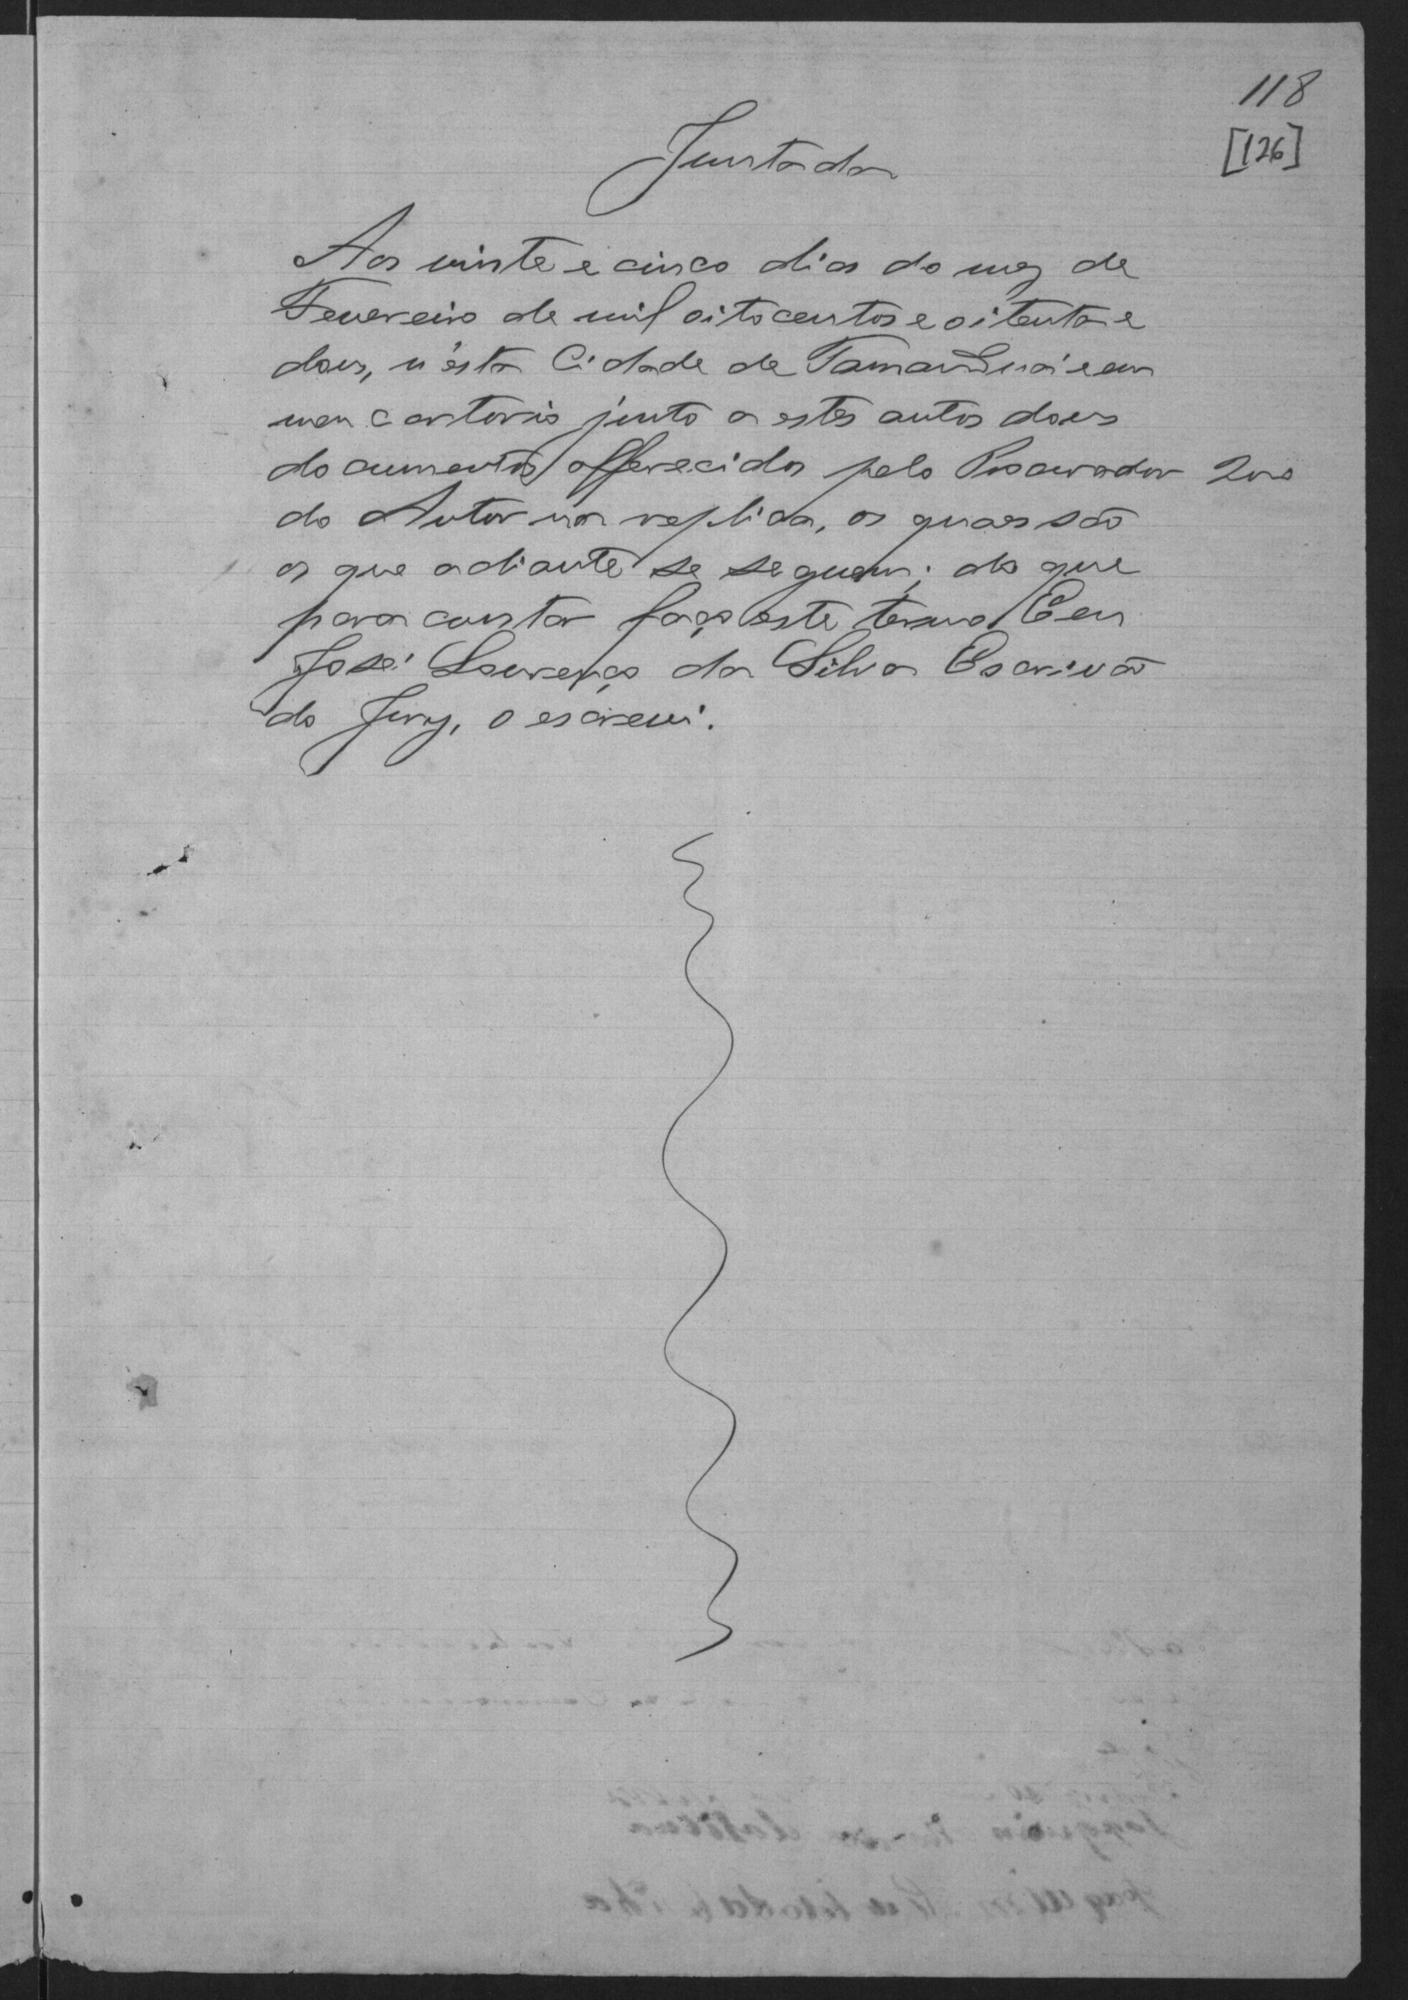 118
[126]
Juntada
Aos vinte e cinco dias do mez de
Fevereiro de mil oitocentos e oitenta e
dous, n'esta Cidade de Tamanduá e em
meu cartorio junto a estes autos dous
documentos offerecidos pelo Procurador 200
do Autor na replica, os quaes são
os que adiante se seguem; do que
para constar faço este termo. Eu
José Lourenço da Silva Escrivão
do Jury, o escrevi.